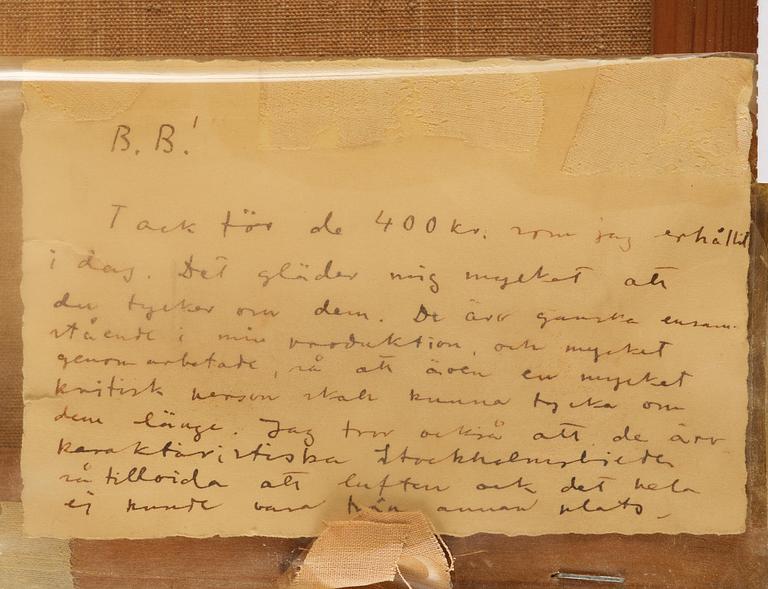 B. B.!
Tack för de 400 kr. som jag erhållit
i dag. Det gläder mig mycket att
du tycker om dem. De är ganska ensam-
stående i min produktion, och mycket
genomarbetade, så att även en mycket
kritisk person skall kunna tycka om
dem länge. Jag tror också att de är
karaktäristiska Stockholmsbilder
så tillvida att luften och det hela
ej kunde vara från annan plats.